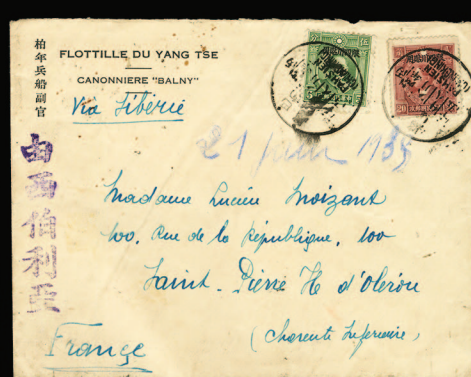 柏年兵船副官
FLOTTILLE DU YANG TSE
CANONNIERE "BALNY"
Via Sibérie
21 juin 1935
由西伯利亞
Madame Lucien Moizant
100, Rue de la République, 100
Saint-Pierre He d'Oléron
(Charente Inférieure)
France